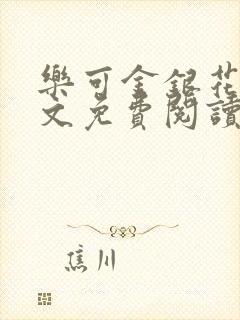 樂可金銀花
文免費閱讀
焦川